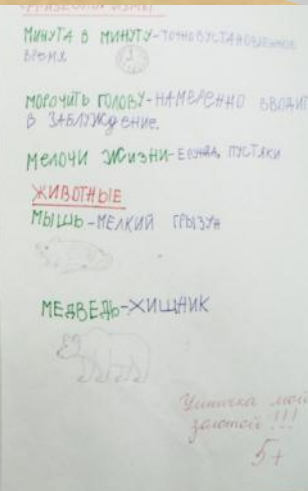 МИНУТА В МИНУТУ-ТОЧНО В УСТАНОВЛЕННОЕ
ВРЕМЯ
МОРОЧИТЬ ГОЛОВУ-НАМЕРЕННО ВВОДИТ
В ЗАБЛУЖДЕНИЕ.
МЕЛОЧИ ЖИЗНИ-ЕРУНДА, ПУСТЯКИ
ЖИВОТНЫЕ
МЫШЬ-МЕЛКИЙ ГРЫЗУН
МЕДВЕДЬ-ХИЩНИК
Умничка мой
золотой!!!
5+